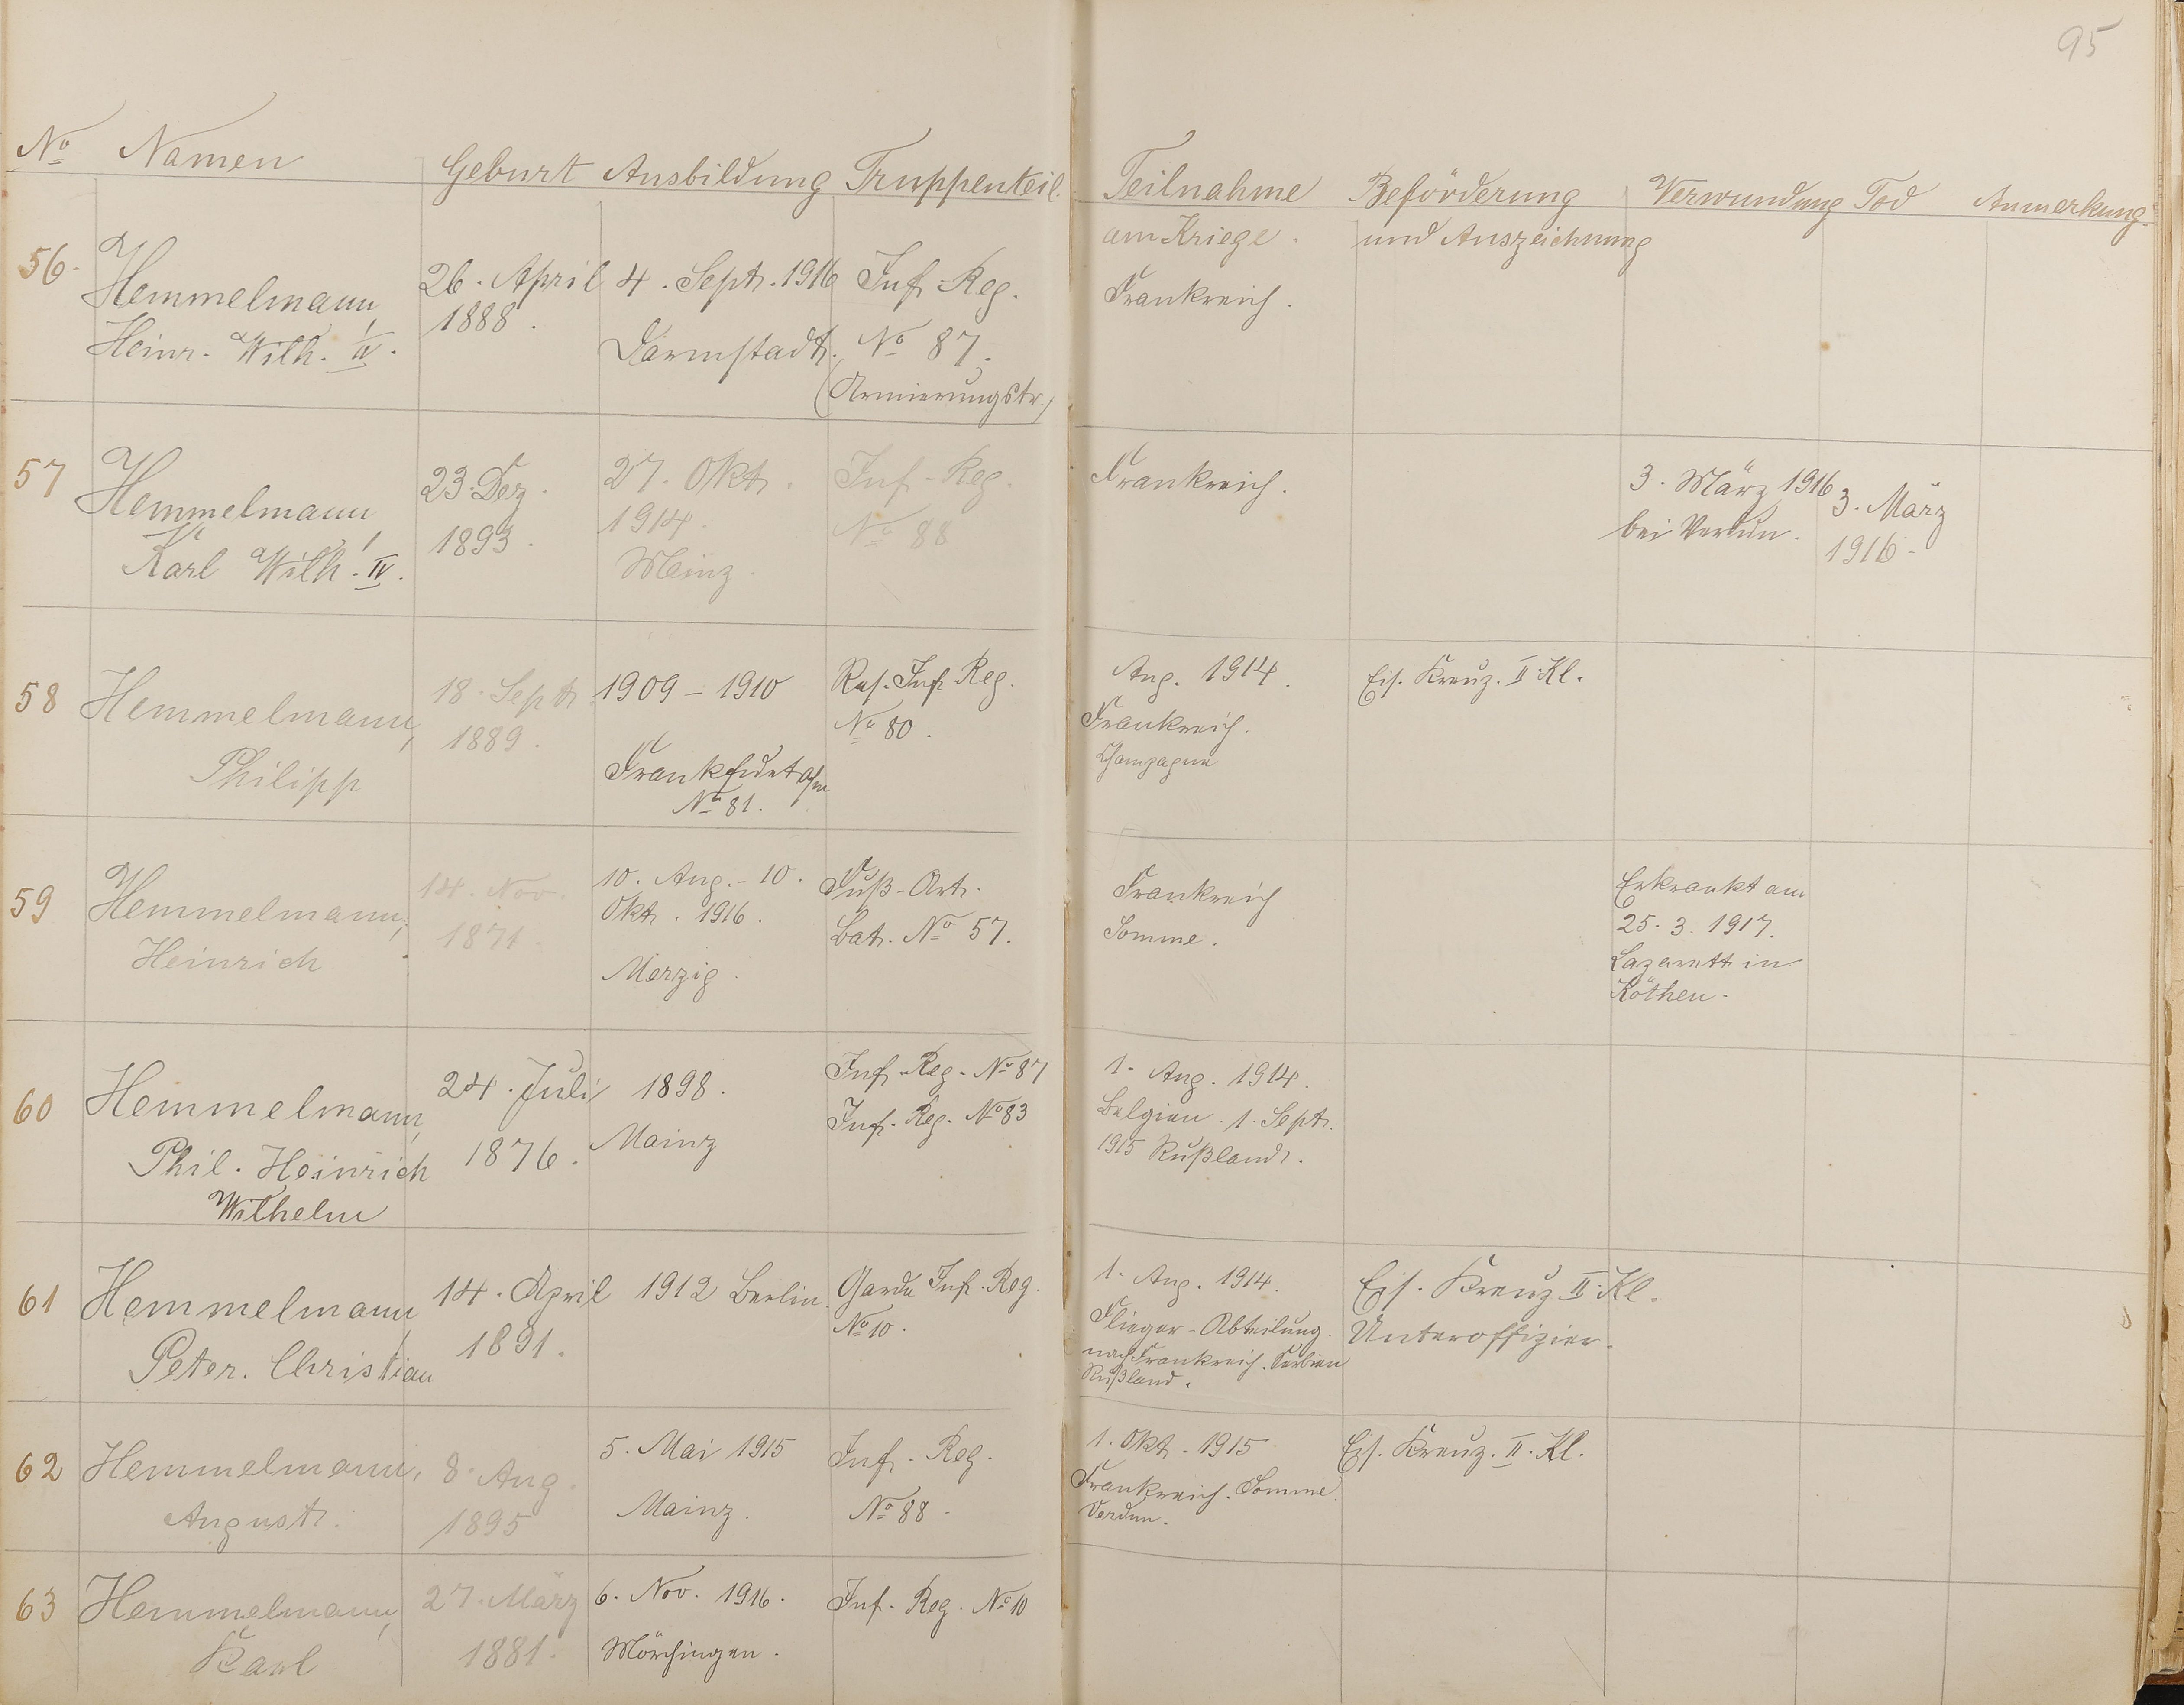 95
No Namen Geburt Ausbildung Truppenteil. Teilnahme am Kriege. Beförderung und Auszeichnung Verwundung Tod Anmerkung.
56.
Hemmelmann,
Heinr. Wilh. IV.
26. April
1888.
4. Sept. 1916
Darmstadt.
Inf. Reg.
No 87.
(Armierungstr.)
Frankreich.
57
Hemmelmann,
Karl Wilh. IV.
23. Dez.
1893.
27. Okt.
1914.
Mainz.
Inf. Reg.
No 88
Frankreich.
3. März 1916
bei Verdun.
3. März
1916.
58
Hemmelmann,
Philipp
18. Sept.
1889.
1909 - 1910
Frankfurt a/m
No 81.
Res. Inf. Reg.
No 80.
Aug. 1914.
Frankreich.
Champagne
Eis. Kreuz. II Kl.
59
Hemmelmann,
Heinrich
14. Nov.
1871.
10. Aug. - 10.
Okt. 1916.
Merzig.
Fuß-Art.
Bat. No 57.
Frankreich
Somme.
Erkrankt am
25. 3. 1917.
Lazarett in
Köthen.
60
Hemmelmann,
Phil. Heinrich
Wilhelm
24. Juli
1876.
1898.
Mainz
Inf. Reg. No 87
Inf. Reg. No 83
1. Aug. 1914.
Belgien. 1. Sept.
1915 Rußland.
61
Hemmelmann
Peter. Christian
14. April
1891.
1912 Berlin.
Garde Inf. Reg.
No 10.
1. Aug. 1914.
Flieger-Abteilung.
nach Frankreich. Serbien
Rußland.
Eis. Kreuz II. Kl.
Unteroffizier.
62
Hemmelmann,
August.
8. Aug.
1895
5. Mai 1915
Mainz.
Inf. Reg.
No 88.
1. Okt. 1915
Frankreich. Somme.
Verdun.
Eis. Kreuz. II. Kl.
63
Hemmelmann,
Karl
27. März
1881.
6. Nov. 1916.
Mörchingen.
Inf. Reg. No 10